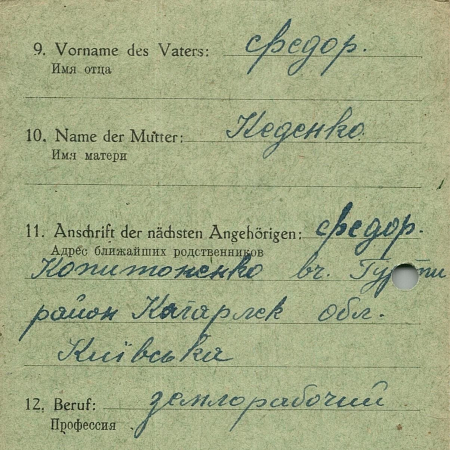 9. Vorname des Vaters: Федор.
Имя отца
10. Name der Mutter: Кеденко
Имя матери
11. Anschrift der nächsten Angehörigen: Федор.
Адрес ближайших родственников
Копитоненко вч.
район Кагарлек обл.
Київська
12. Beruf: землорабочий
Профессия